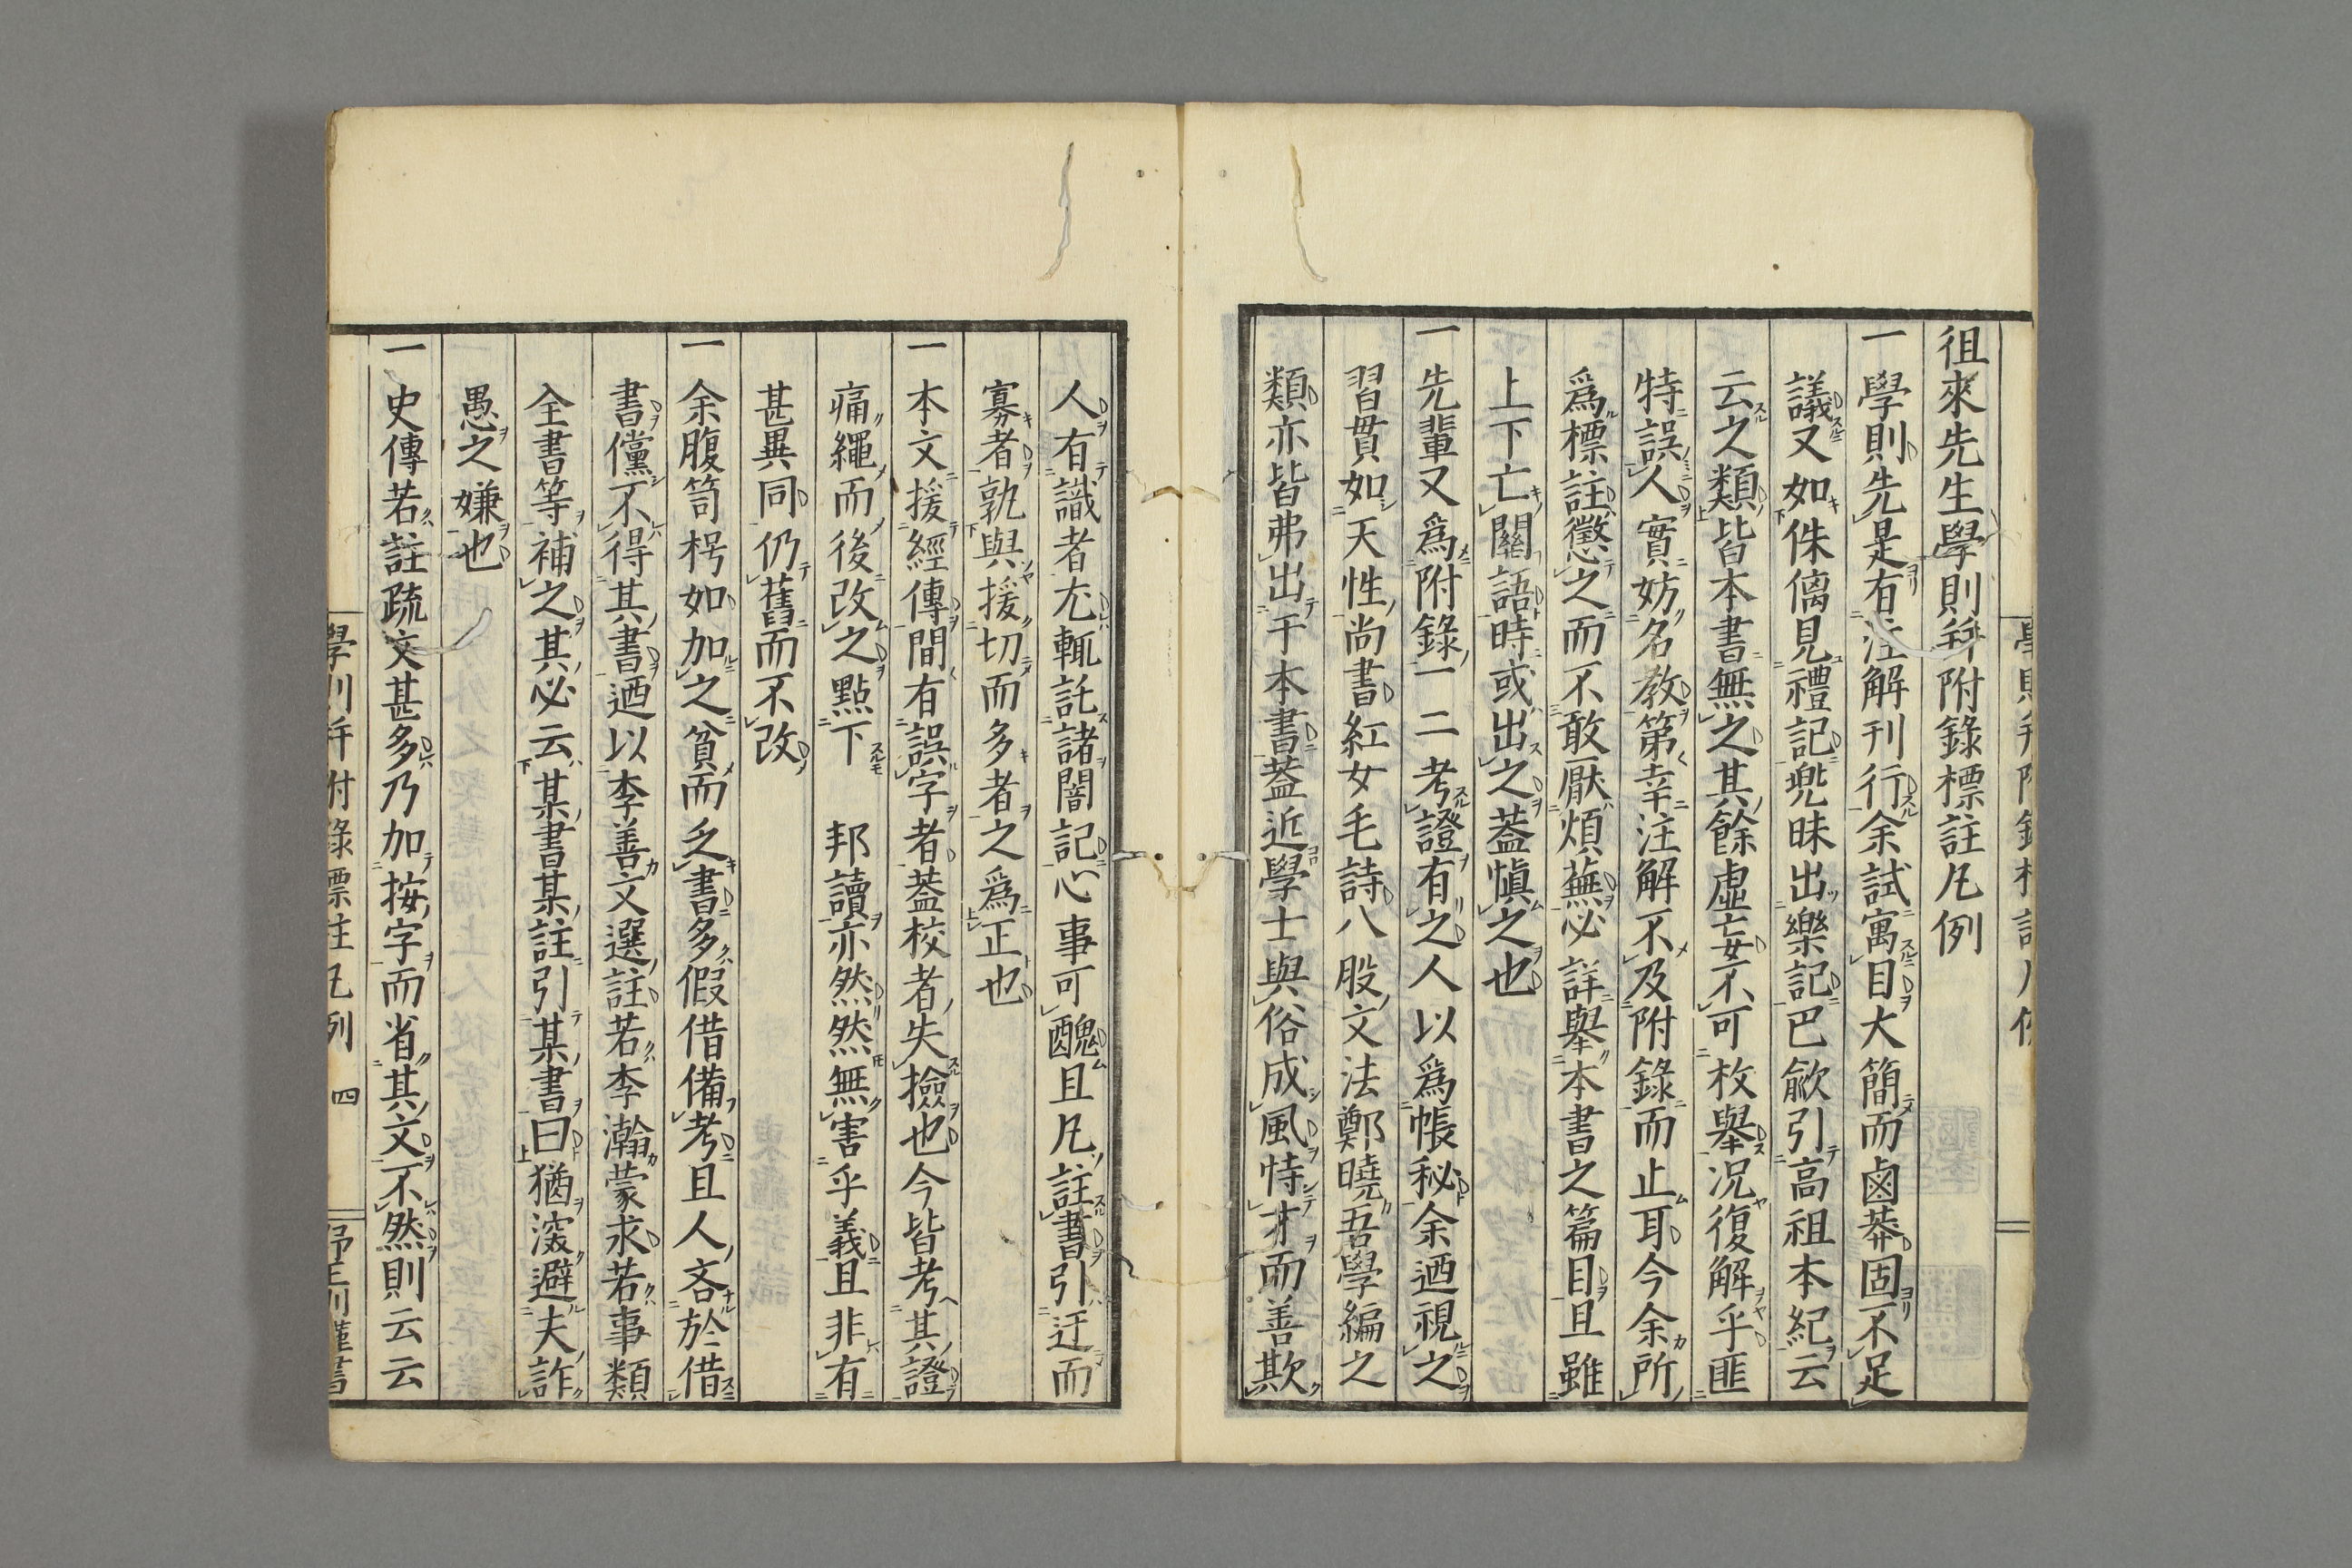 徂來先生學則幷附錄標註凡例
一學則先是有注解刊行余試寓目大簡而鹵莽固不足
議又如侏僞見禮記兠昧出樂記巴歈引高祖本紀云
云之類皆本書無之其餘虛妄不可枚舉況復解乎匪
特誤人實妨名教第幸注解不及附錄而止耳今余所
爲標註懲之而不敢厭煩蕪必詳舉本書之篇目且雖
上下亡關語時或出之蓋愼之也
一先輩又爲附錄一二考證有之人以爲帳秘余迺視之
習貫如天性尚書紅女毛詩八股文法鄭曉吾學編之
類亦皆弗出于本書蓋近學士與俗成風恃才而善欺
人有識者尤輒託諸闇記心事可醜且凡註書引迂而
寡者孰與援切而多者之爲正也
一本文援經傳間有誤字者蓋校者失撿也今皆考其證
痛繩而後改之點下 邦讀亦然然無害乎義且非有
甚異同仍舊而不改
一余腹笥枵如加之貧而乏書多假借備考且人吝於借
書儻不得其書迺以李善文選註若李瀚蒙求若事類
全書等補之其必云某書某註引某書曰猶深避夫詐
愚之嫌也
一史傳若註疏文甚多乃加按字而省其文不然則云云
學則幷附錄標註凡例 四